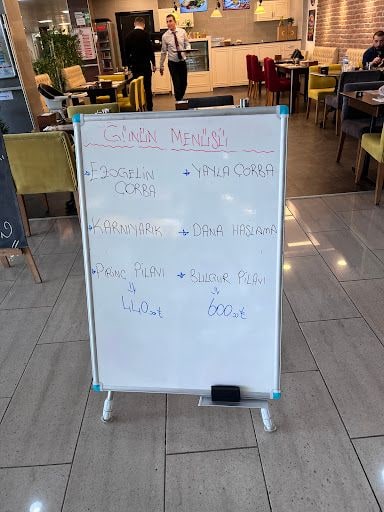 GÜNÜN MENÜSÜ
EZOGELİN ÇORBA
YAYLA ÇORBA
KARNIYARIK
DANA HAŞLAMA
PİRİNÇ PİLAVI
BULGUR PİLAVI
440,00 ₺
600,00 ₺